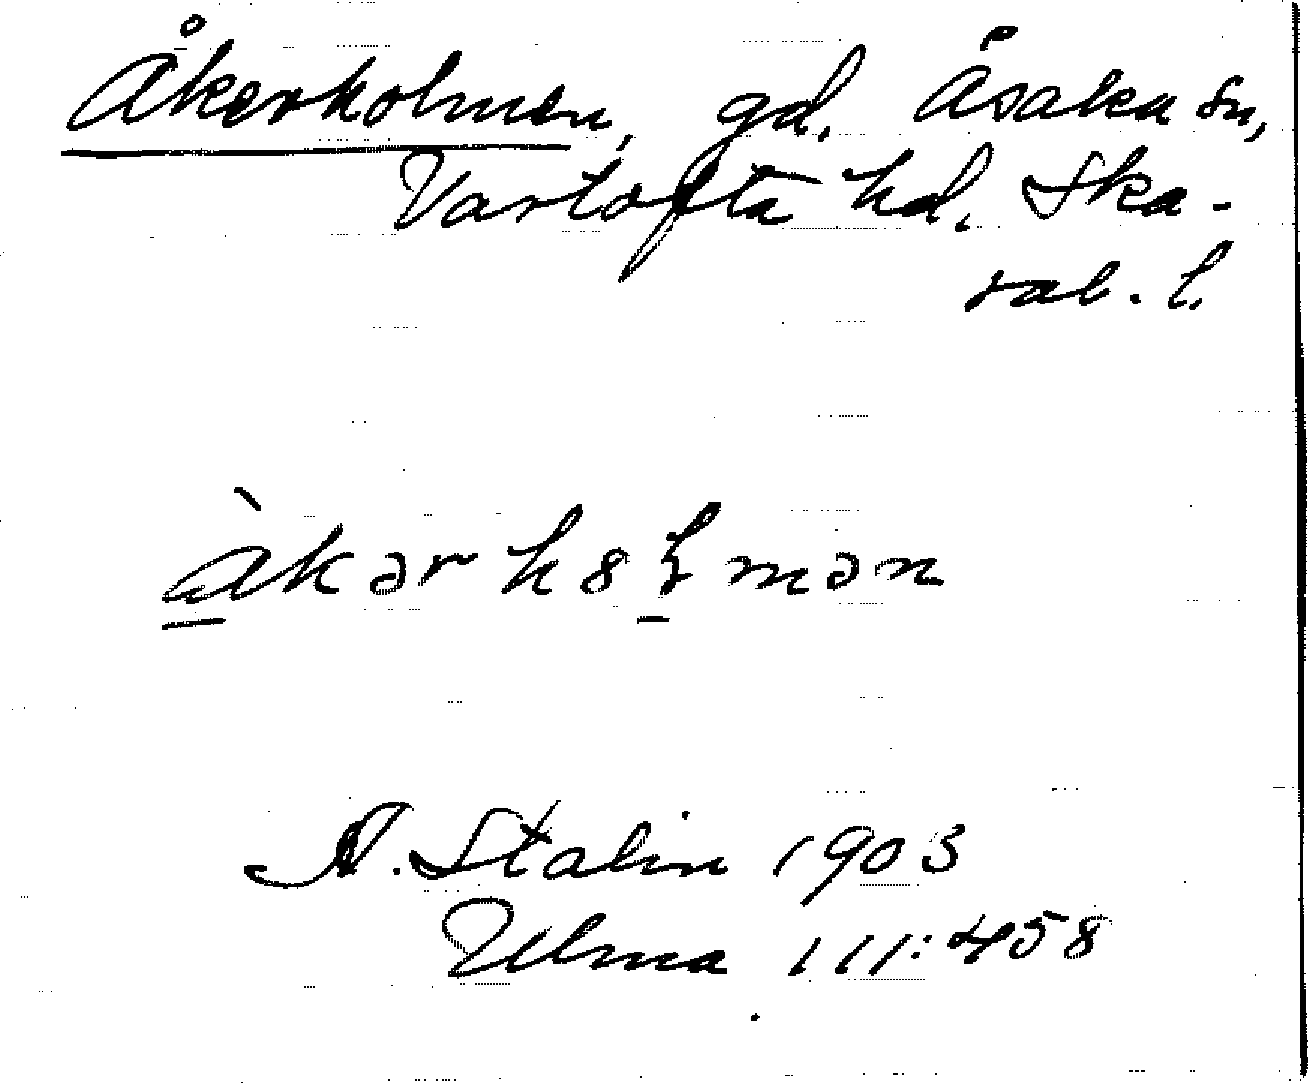 Åkerholmen, gd, Åsaka sn,
Vartofta hd, Ska-
rab. l.
àkərh8ɫmən
A. Stalin 1903
Ulma 111:458